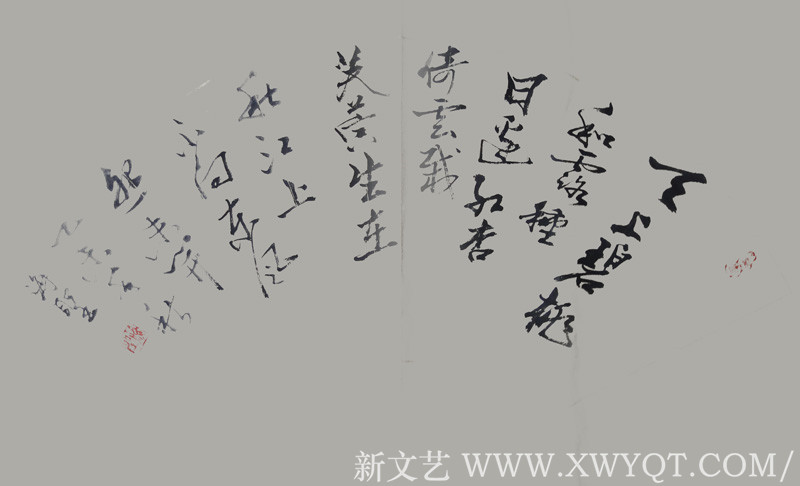 天上碧桃
和露種
日邊紅杏
倚雲栽
芙蓉生在
秋江上
不向东风
怨未開
新文艺 WWW.XWYQT.COM/